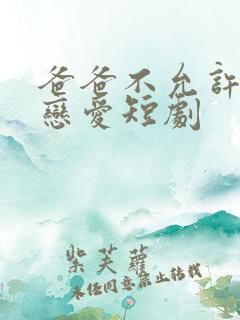 爸爸不允許
戀愛短劇
紫芙蘿
未任同意禁止转载